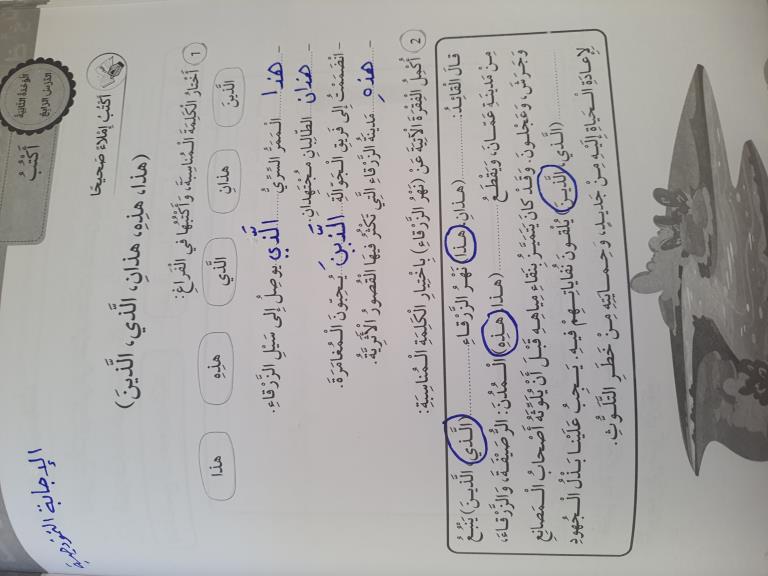 الإجابة النموذجية
الْوَحْدَةُ الثّانِيَةُ
الدَّرْسُ الرّابِعُ
أَكْتُبُ
أَكْتُبُ إِمْلاءً صَحيحًا
(هذا، هذِهِ، هذانِ، الَّذي، الَّذينَ)
1 أَخْتارُ الْكَلِمَةَ الْمُناسِبَةَ، وَأَكْتُبُها في الْفَراغِ:
هذا هذِهِ الَّذي هذانِ الَّذينَ
- هذا الْمَمَرُّ السِّرِّيُّ الَّذي يوصِلُ إِلى سَيْلِ الزَّرْقاءِ.
- هذان الطّالِبانِ مُجْتَهِدانِ.
- انْضَمَمْتُ إِلى فَريقِ الْجَوّالَةِ الَّذينَ يُحِبّونَ الْمُغامَرَةَ.
- هذهِ مَدينَةُ الزَّرْقاءِ الَّتي تَكْثُرُ فيها الْقُصورُ الْأَثَرِيَّةُ.
2 أُكْمِلُ الْفِقْرَةَ الْآتِيَةَ عَنْ (نَهْرِ الزَّرْقاءِ) بِاخْتِيارِ الْكَلِمَةِ الْمُناسِبَةِ:
قالَ الْقائِدُ: ........ (هذانِ، هذا) نَهْرُ الزَّرْقاءِ ........ (الَّذي، الَّذينَ) يَنْبُعُ
مِنْ مَدينَةِ عَمّانَ، وَيَقْطَعُ ........ (هذا، هذِهِ) الْمُدُنَ: الرُّصَيْفَةَ، وَالزَّرْقاءَ،
وَجَرَشَ، وَعَجْلونَ. وَقَدْ كانَ يَتَمَيَّزُ بِنَقاءِ مِياهِهِ قَبْلَ أَنْ يُلَوِّثَهُ أَصْحابُ الْمَصانِعِ
........ (الَّذي، الَّذينَ) يُلْقونَ نُفاياتِهِمْ فيهِ. يَجِبُ عَلَيْنا بَذْلُ الْجُهودِ
لِإِعادَةِ الْحَياةِ إِلَيْهِ مِنْ جَديدٍ، وَحِمايَتِهِ مِنْ خَطَرِ التَّلَوُّثِ.